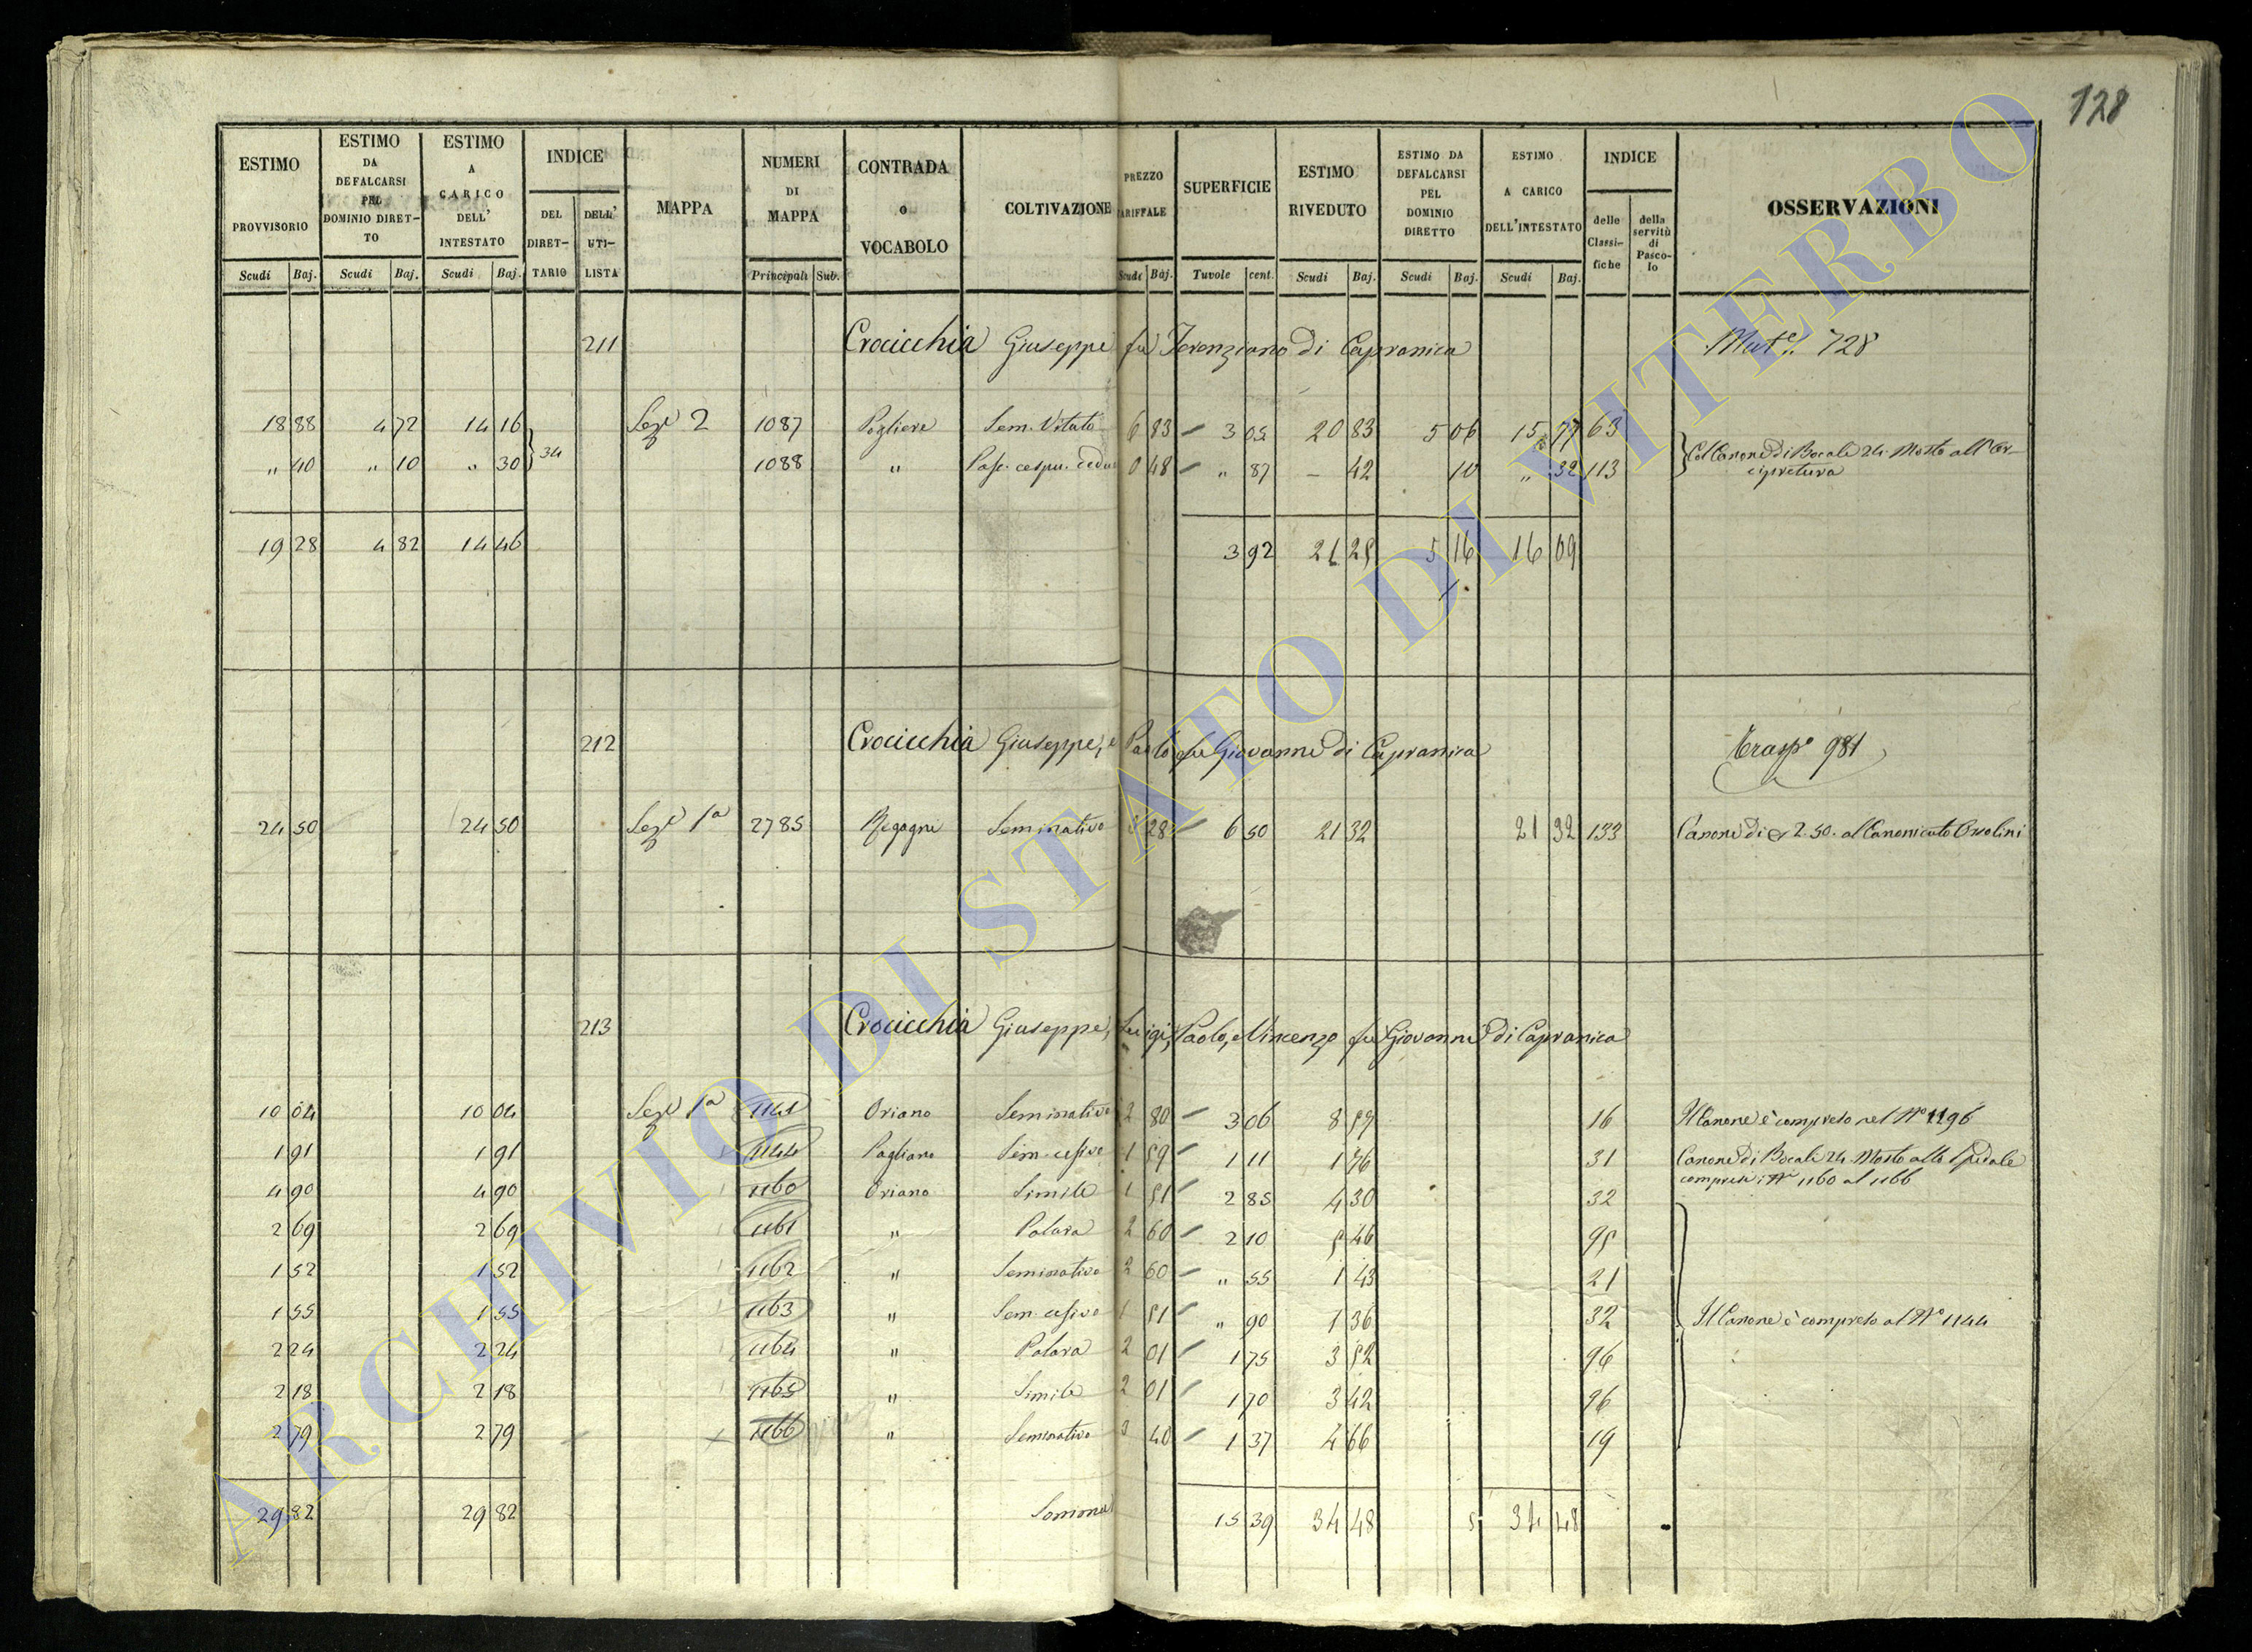 128
ESTIMO PROVVISORIO Scudi Baj. ESTIMO DA DEFALCARSI PEL DOMINIO DIRET- TO Scudi Baj. ESTIMO A CARICO DELL' INTESTATO Scudi Baj. INDICE DEL DIRET- TARIO DELL' UTI- LISTA MAPPA NUMERI DI MAPPA Principali Sub. CONTRADA o VOCABOLO COLTIVAZIONE PREZZO TARIFFALE Scudi Baj. SUPERFICIE Tavole cent. ESTIMO RIVEDUTO Scudi Baj. ESTIMO DA DEFALCARSI PEL DOMINIO DIRETTO Scudi Baj. ESTIMO A CARICO DELL'INTESTATO Scudi Baj. INDICE delle Classi- fiche della servitù di Pasco- lo OSSERVAZIONI
211 Crocicchia Giuseppe fu Terenziano di Capranica Mut. 728
18 88 4 72 14 16 34 Sez. 2 1087 Pogliere Sem. Vitato 6 83 3 05 20 83 5 06 15 77 63 Col Canone di Bocali 24. Mosto all'Ar-
„ 40 „ 10 „ 30 1088 „ Pasc. cespu. ceduo 0 48 „ 87 – 42 10 „ 32 113 cipretura
19 28 4 82 14 46 3 92 21 25 5 16 16 09
212 Crocicchia Giuseppe, e Paolo fu Giovanni di Capranica Trasp. 981
24 50 24 50 Sez. 1a 2785 Seminativo 3 28 6 50 21 32 21 32 133 Canone di 2.50. al Canonicato Orsolini
213 Crocicchia Giuseppe, Luigi, Paolo, e Vincenzo fu Giovanni di Capranica
10 04 10 04 Sez. 1a 1141 Oriano Seminativo 2 80 3 06 8 57 16 Il Canone è compreso nel No 1196
1 91 1 91 1144 Pagliano Sem. cesivo 1 59 1 11 1 76 31 Canone di Bocali 24. Mosto allo Spedale
4 90 4 90 1160 Oriano Simile 1 51 2 85 4 30 32 compresi i Ni 1160 al 1166
2 69 2 69 1161 „ Palara 2 60 2 10 5 46 95
1 52 1 52 1162 „ Seminativo 2 60 „ 55 1 43 21
1 55 1 55 1163 „ Sem. cesivo 1 51 „ 90 1 36 32 Il Canone è compreso al No 1144
2 24 2 24 1164 „ Palara 2 01 1 75 3 52 96
2 18 2 18 1165 „ Simile 2 01 1 70 3 42 96
2 79 2 79 1166 „ Seminativo 3 40 1 37 4 66 19
29 82 29 82 Somma 15 39 34 48 34 48
ARCHIVIO DI STATO DI VITERBO